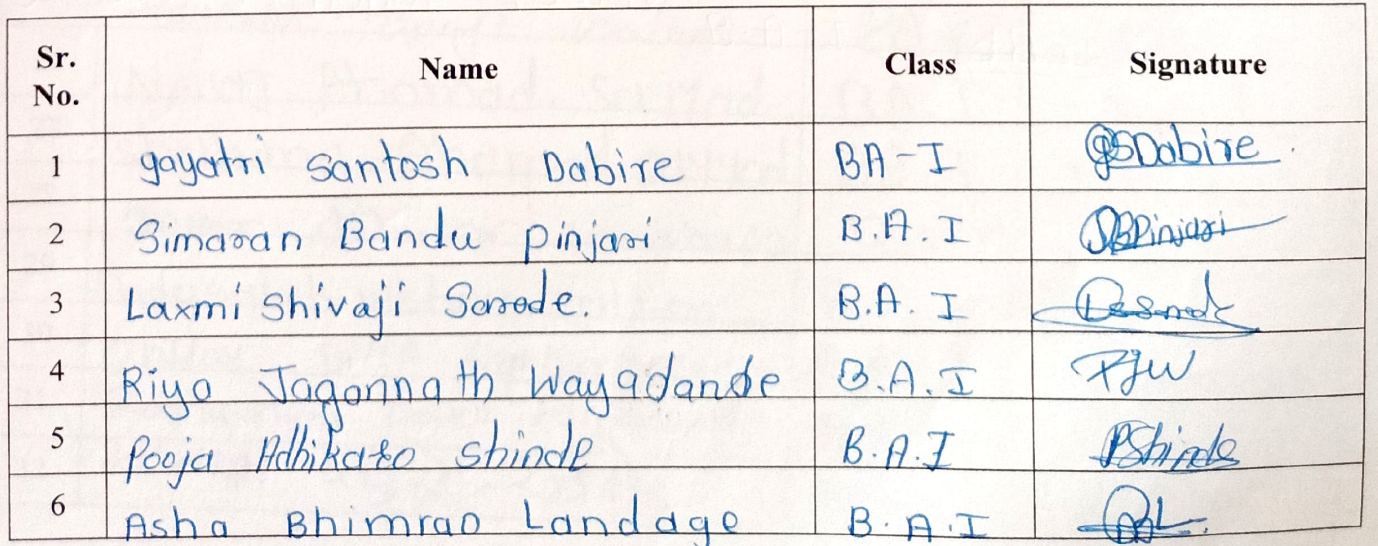 Sr. No. Name Class Signature
1 gayatri Santosh Dabire BA-I GSDabire.
2 Simaran Bandu Pinjari B.A.I SBPinjari
3 Laxmi Shivaji Sarode. B.A. I
4 Riya Jagannath Waydande B.A.I RJW
5 Pooja Shinde B.A.I PShinde
6 Asha Bhimrao Landage B.A.I